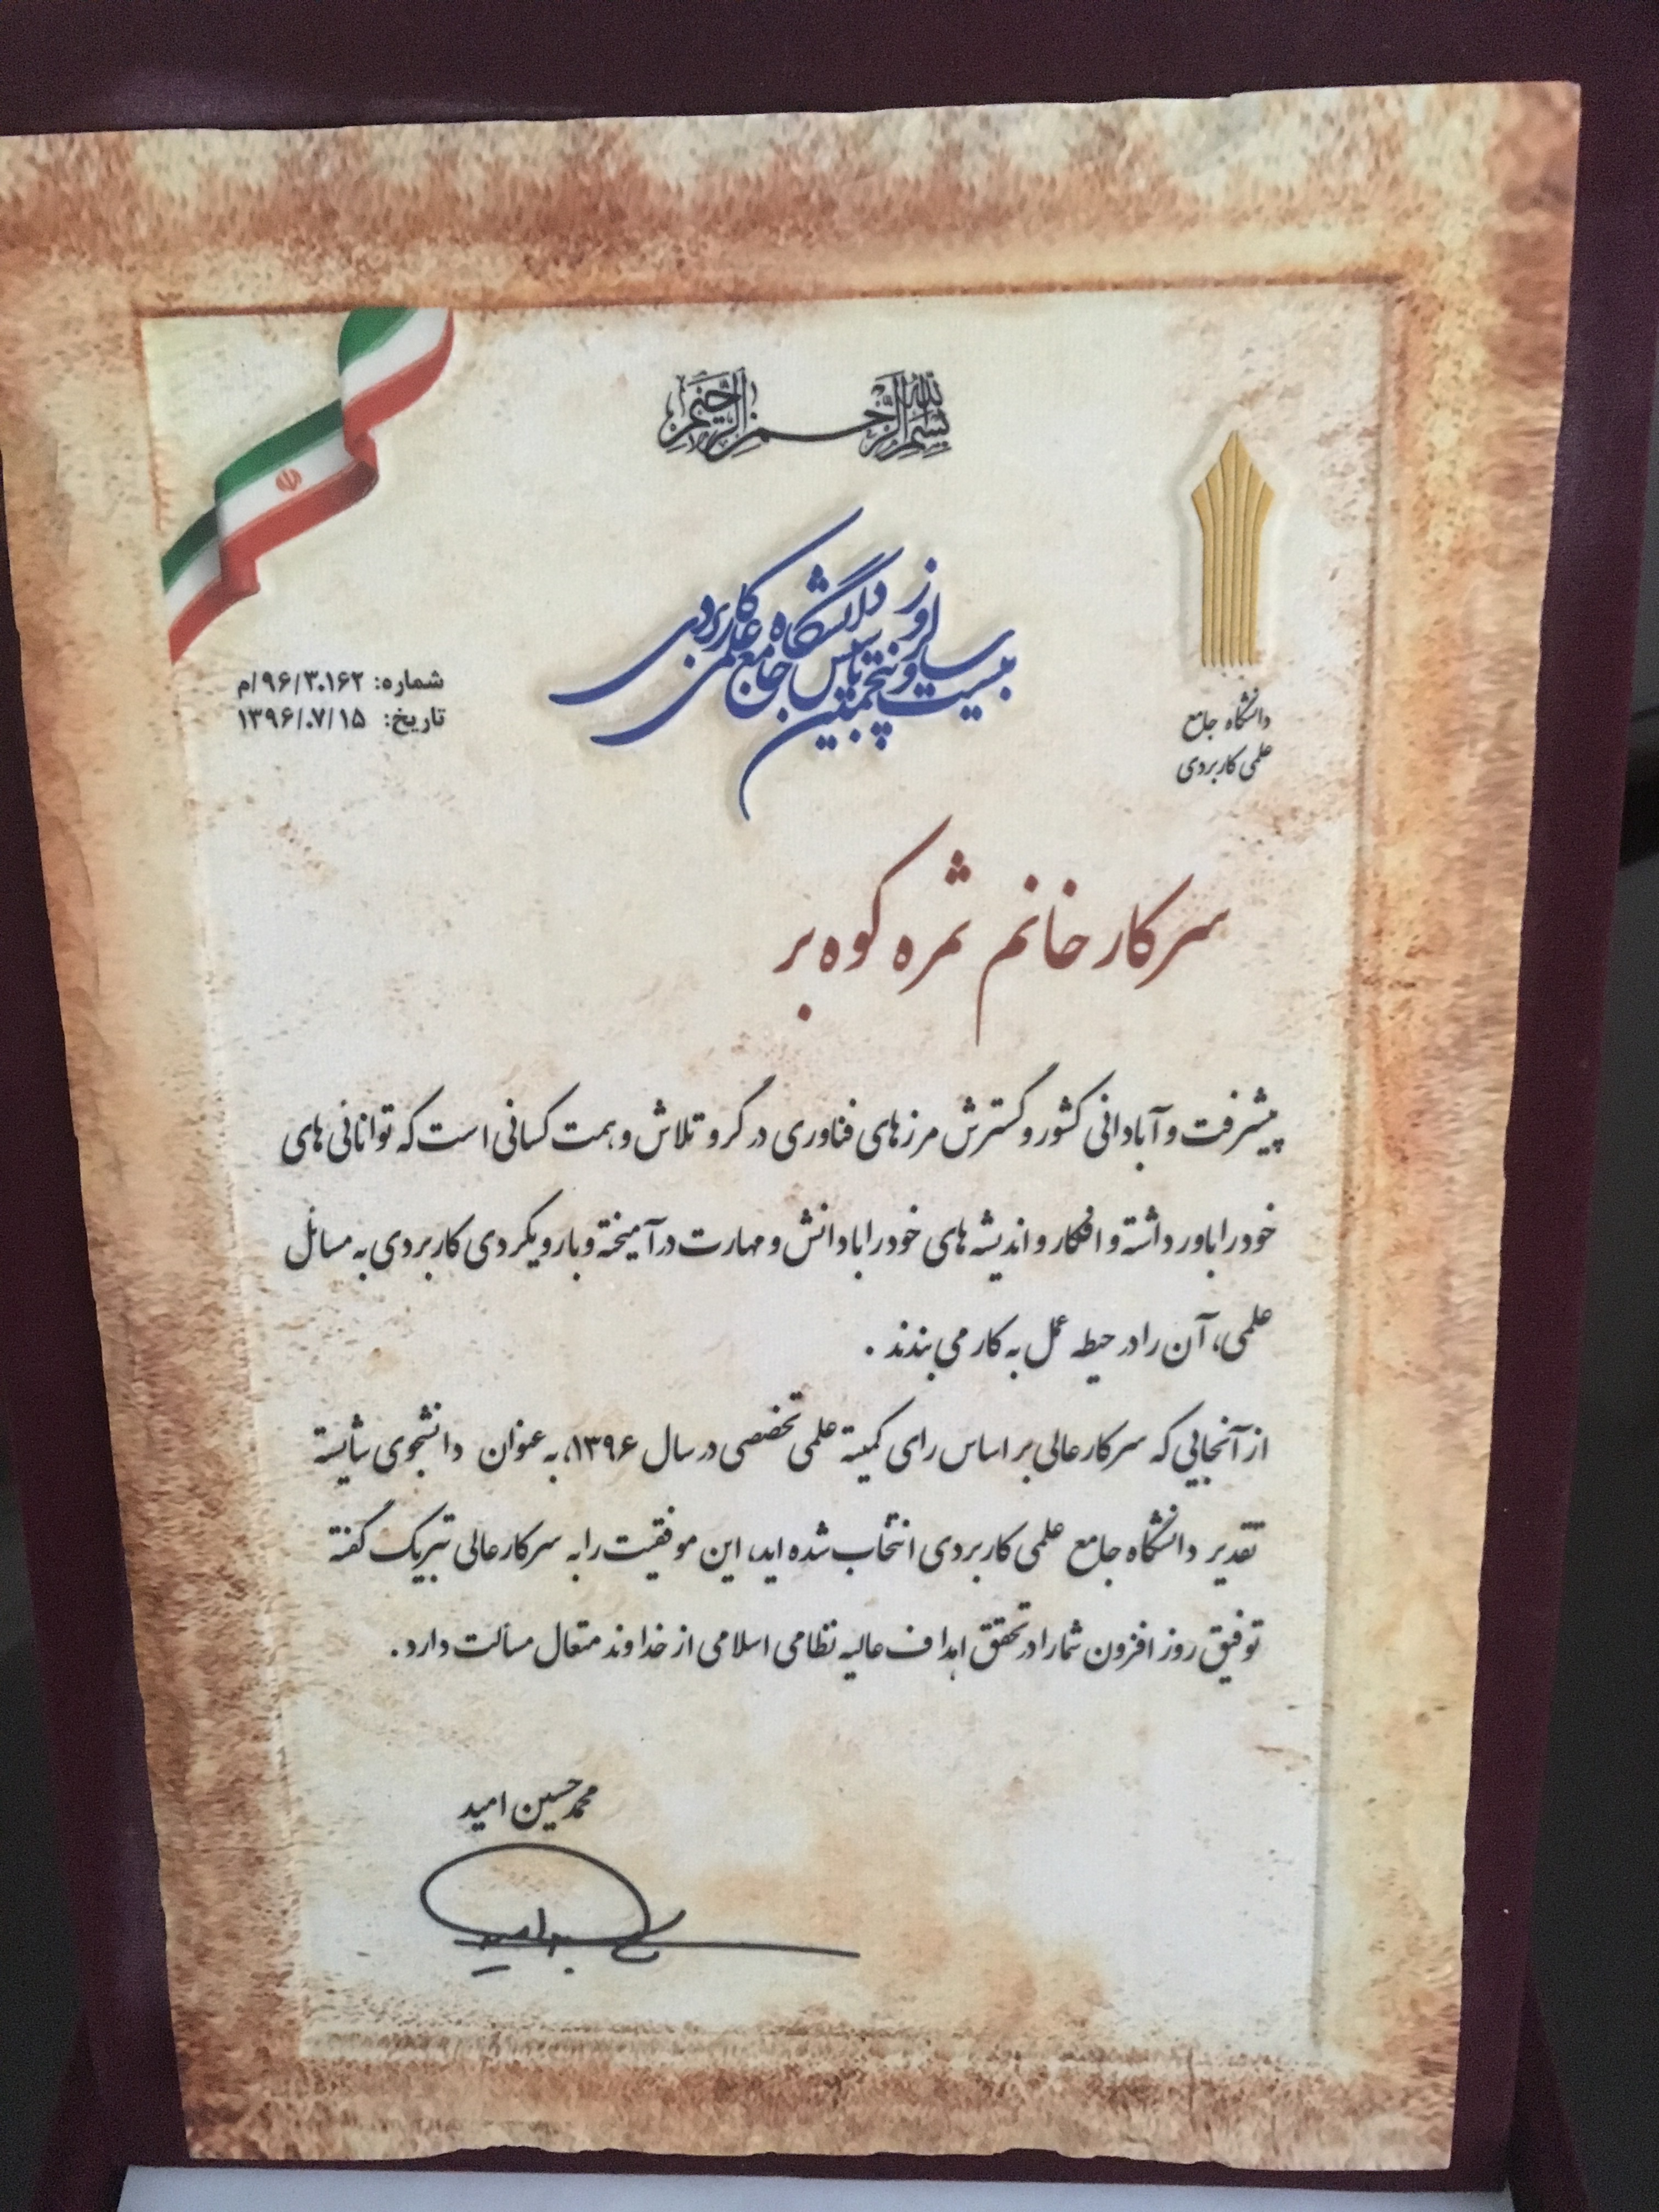 بسم الله الرحمن الرحیم
بیست و پنجمین سالروز تاسیس دانشگاه جامع علمی کاربردی
دانشگاه جامع
علمی کاربردی
شماره: ۹۶/۳۰۱۶۲/م
تاریخ: ۱۳۹۶/۰۷/۱۵
سرکار خانم ثمره کوه بر
پیشرفت و آبادانی کشور و گسترش مرزهای فناوری در گرو تلاش و همت کسانی است که توانائی های
خود را باور داشته و افکار و اندیشه های خود را با دانش و مهارت درآمیخته و با رویکردی کاربردی به مسائل
علمی، آن را در حیطه عمل به کار می بندند .
از آنجایی که سرکارعالی بر اساس رای کمیته علمی تخصصی در سال ۱۳۹۶، به عنوان دانشجوی شایسته
تقدیر دانشگاه جامع علمی کاربردی انتخاب شده اید، این موفقیت را به سرکارعالی تبریک گفته
توفیق روز افزون شما را در تحقق اهداف عالیه نظامی اسلامی از خداوند متعال مسألت دارد.
محمد حسین امید